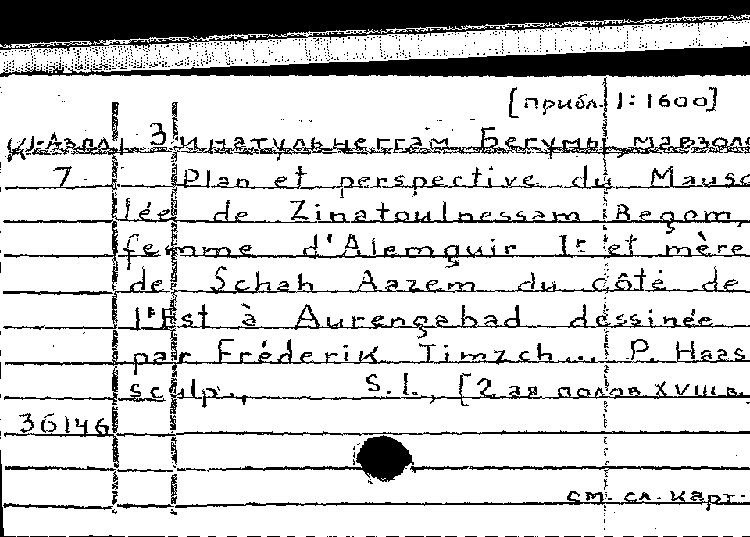 [прибл. 1:1600]
Зинатульнессам Бегумы, мавзол
7 Plan et perspective du Mauso
lée de Zinatoulnessam Begom,
femme d'Alemguir Ir et mère
de Schah Aazem du côté de
l'Est à Aurengabad dessinée
par Fréderik Timzch... P. Haas
sculp., S.l., [2ая полов XVIIIв.
36146
см. сл. карт.